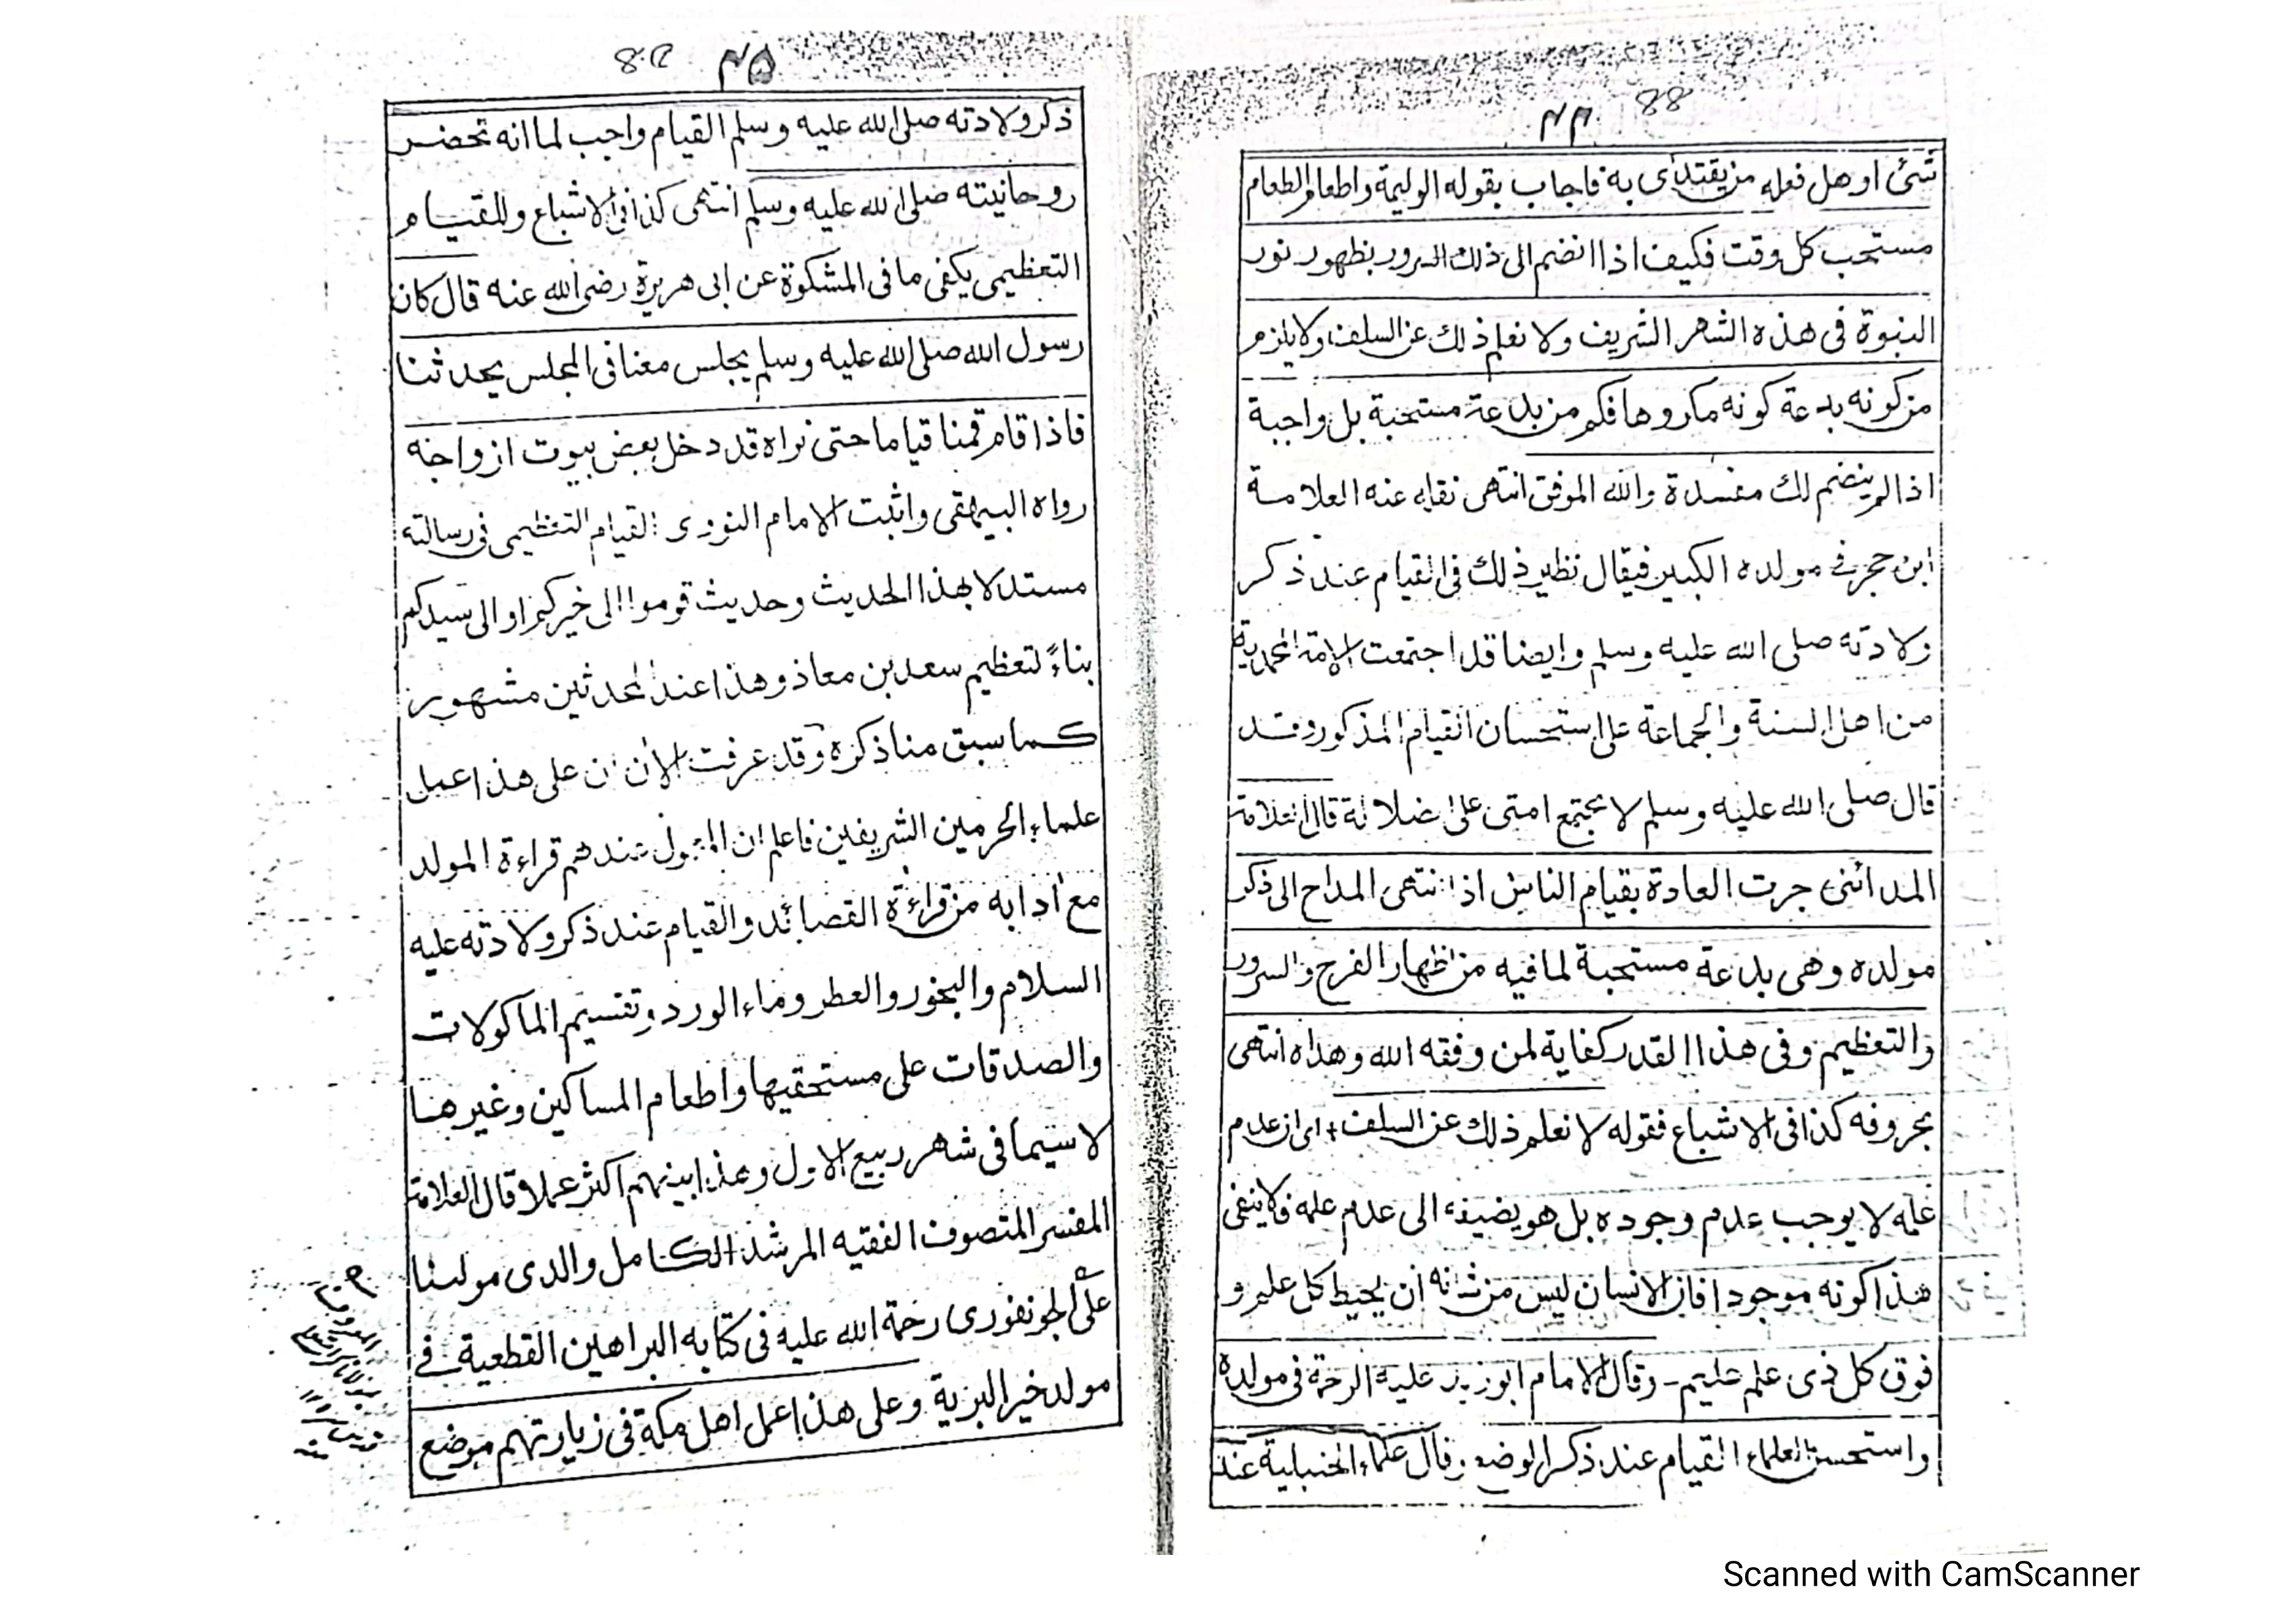 ٤٤ 88
شئ او هل فعله من يقتدى به فاجاب بقوله الوليمة واطعام الطعام
مستحب كل وقت فكيف اذا انضم الى ذلك السرور بظهور نور
النبوة فى هذه الشهر الشريف ولا نعلم ذلك عن السلف ولا يلزم
من كونه بدعة كونه مكروها فكم من بدعة مستحبة بل واجبة
اذا لم ينضم لك مفسدة والله الموفق انتهى نقله عنه العلامة
ابن حجر فى مولده الكبير فيقال نظير ذلك فى القيام عند ذكر
ولادته صلى الله عليه وسلم وايضا قد اجتمعت الامة المحمدية
من اهل السنة والجماعة على استحسان القيام المذكور وقد
قال صلى الله عليه وسلم لا يجتمع امتى على ضلالة قال العلامة
المدائنى جرت العادة بقيام الناس اذا انتهى المداح الى ذكر
مولده وهى بدعة مستحبة لما فيه من اظهار الفرح والسرور
والتعظيم وفى هذا القدر كفاية لمن وفقه الله وهداه انتهى
بحروفه كذا فى الاشباع فقوله لا نعلم ذلك عن السلف اى از عدم
علمه لا يوجب عدم وجوده بل هو يضيفه الى عدم علمه فلا ينفى
هذا كونه موجودا فان الانسان ليس من شانه ان يحيط كل علم و
فوق كل ذى علم عليم - وقال الامام ابو زيد عليه الرحمة فى مولده
واستحسن العلماء القيام عند ذكر الوضع وقال علماء الحنبلية عند
٤٥
ذكر ولادته صلى الله عليه وسلم القيام واجب لما انه تحضر
روحانيته صلى الله عليه وسلم انتهى كذا فى الاشباع وللقيام
التعظيمى يكفى ما فى المشكوة عن ابى هريرة رضى الله عنه قال كان
رسول الله صلى الله عليه وسلم يجلس معنا فى المجلس يحدثنا
فاذا قام قمنا قياما حتى نراه قد دخل بعض بيوت ازواجه
رواه البيهقى واثبت الامام النووى القيام التعظيمى فى رسالته
مستدلا بهذا الحديث وحديث قوموا الى خيركم او الى سيدكم
بناءً لتعظيم سعد بن معاذ وهذا عند المحدثين مشهور
كما سبق منا ذكره وقد عرفت الان ان على هذا عمل
علماء الحرمين الشريفين فاعلم ان المعمول عندهم قراءة المولد
مع ادابه من قراءة القصائد والقيام عند ذكر ولادته عليه
السلام والبخور والعطر وماء الورد وتقسيم الماكولات
والصدقات على مستحقيها واطعام المساكين وغيرها
لا سيما فى شهر ربيع الاول وهذا بينهم اكثر عملا وقال العلامة
المفسر المتصوف الفقيه المرشد الكامل والدى مولينا
على الجونفورى رحمة الله عليه فى كتابه البراهين القطعية فى
مولد خير البرية وعلى هذا عمل اهل مكة فى زيارتهم موضع
Scanned with CamScanner